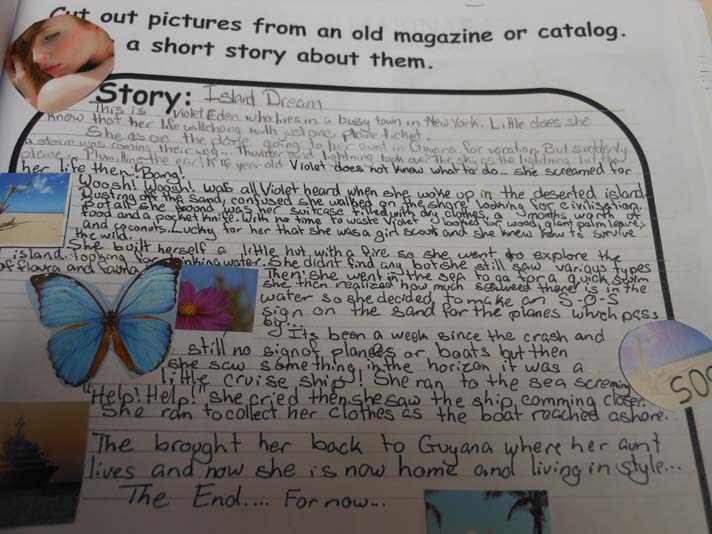 Cut out pictures from an old magazine or catalog.
a short story about them.
Story: Island Dream
This is Violet Eden who lives in a busy town in New York. Little does she
know that her life will chang with just one plane ticket.
She as on the plane going to her aunt in Guyana for vacation. But suddenly
a storm was coming their way... Thunder and lightning took over the sky as the lightning hit they
plane. Plumitting the earth 16 year old Violet does not know what to do... she screamed for
her life then... Bang!
Woosh! Woosh! was all Violet heard when she woke up in the deserted island.
Dusting off the sand, confused she walked on the shore looking for civilisation.
But all she found was her suitcase filled with dry clothes, a months worth of
food and a pocket knife. With no time to waste Violet looked for wood, giant palm leaves
and coconuts. Lucky for her that she was a girl scout and she knew how to survive
the wild.
She built herself a little hut with a fire so she went to explore the
island looking for drinking water. She didn't find any but she still saw various types
of flaura and fauna.
Then she went in the sea to go for a quick swim
she then realized how much seaweed there is in the
water so she decided to make an S-O-S
sign on the sand for the planes which pass
by...
Its been a week since the crash and
still no sign of planes or boats but then
she saw something in the horizon it was a
little cruise ship! She ran to the sea screming
"Help! Help!" she cried then she saw the ship comming closer.
She ran to collect her clothes as the boat reached ashore.
SOS
The brought her back to Guyana where her aunt
lives and now she is now home and living in style...
The End.... For now...